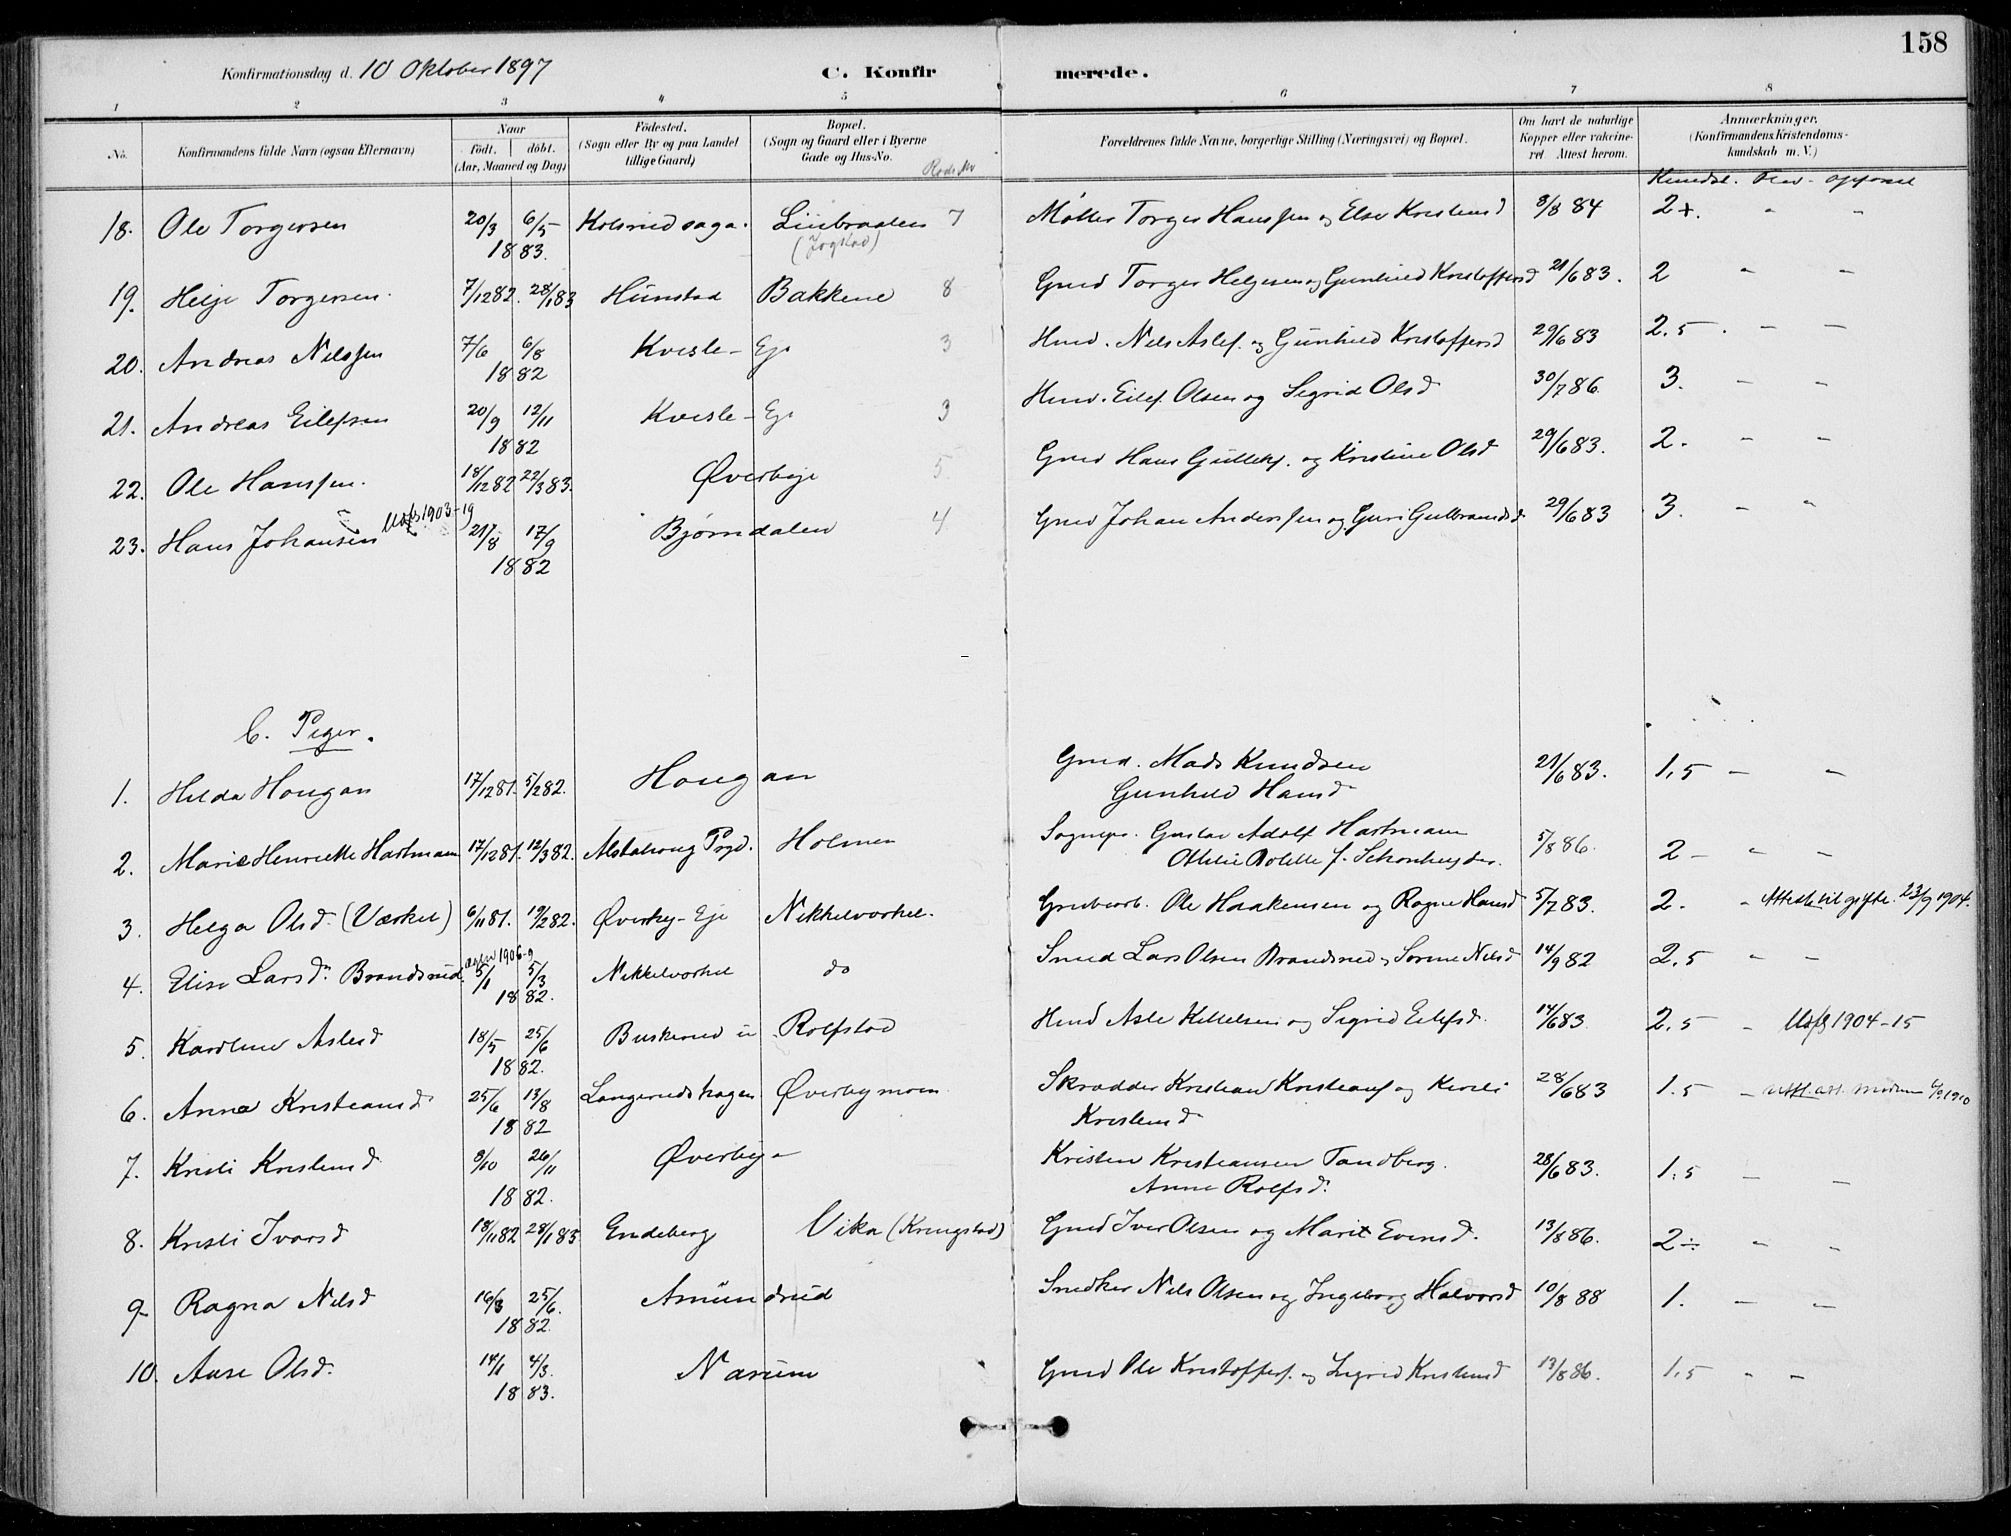 158
Konfirmationsdag d. 10 Oktober 1897 C. Konfirmerede.
1 2 3 4 5 6 7 8
No. Konfirmandens fulde Navn (ogsaa Efternavn) Naar født. døbt. (Aar, Maaned og Dag) Fødested. (Sogn eller By og paa Landet tillige Gaard) Bopæl. (Sogn og Gaard eller i Byerne Gade og Hus-No. Forældrenes fulde Navne, borgerlige Stilling (Næringsvei) og Bopæl. Om havt de naturlige Kopper eller vaccineret Attest herom. Anmærkninger. (Konfirmandens Kristendomskundskab m. V.)
Rods No
Kundsk.
18. Ole Torgersen 20/3 6/5 1883. Kolsrud saga. Linbraaten 7 Møller Torger Hanssen og Else Kristensd 3/8 84 2+. " "
(Jogstad)
19. Helge Torgersen. 7/12 82. 28/1 83 Hunstad Bakkene 8 Gmd Torger Helgesen og Gunhild Kristoffersd 21/6 83. 2 " "
20. Andreas Nilssen 7/6 6/8 1882 Kvisle - Eje 3 Hmd. Nils Aslef. og Gunhild Kristoffersd 29/6 83 2.5. — —
21. Andreas Eilefsen 20/9 12/11 1882 Kvisle - Eje 3 Hmd. Eilef Olsen og Sigrid Olsd 30/7 86. 3. — —
22. Ole Hanssen. 18/12 82 22/3 83. Øverbye 5 Gmd Hans Gulleksf. og Kristine Olsd 29/6 83. 2. — —
23. Hans Johansen 1903-19 21/8 17/9 1882 Bjørndalen 4 Gmd Johan Anderssen og Guri Gulbrandsd 29/6 83 3. — "
C. Piger.
1. Hilda Hougan 17/12 81. 5/2 82. Hougan Gmd. Mads Knudsen 21/6 83. 1,5 — —
Gunhild Hansd
2. Marie Henriette Hartmann 17/12 81. 12/3 82. Alstahoug Pgd. Holmen Sognepr. Gustav Adolf Hartmann 5/8 86. 2 - " —
Ottilie Bolette f. Schønheyder.
3. Helga Olsd. (Værket) 6/11 81. 19/2 82. Øverby - Eje Nikkelværket. Grubearb. Ole Haakensen og Ragne Hansd 5/7 83. 2. " Attest til gifte. 23/9 1904.
4. Elise Larsd. Brandsrud 1906-9 5/1 5/3 1882. Nikkelværket do Smed Lars Olsen Brandsrud og Sorine Nilsd 14/9 82 2.5 — —
5. Karoline Aslesd 18/5 25/6 1882. Buskerud ie Rolfstad Hmd Asle Kittelsen og Sigrid Eilefsd. 14/6 83 2.5 " 1904-15
6. Anne Kristiansd 25/6 13/8 1882 Langerudshagen Øverbymoen Skrædder Kristian Kristiansf og Kirsti 28/6 83 1.5 —
Kristensd
7. Kristi Kristensd 3/10 26/11 1882. Øverbye Kristen Kristiansen Tandberg. 28/6 83. 1.5 — —
Anne Rolfsd.
8. Kristi Ivarsd 18/11 82 28/1 83. Endeberg Vika (Kringstad) Gmd Iver Olsen og Marit Evensd. 13/8 86. 2÷ " "
9. Ragna Nilsd 16/3 25/6. 1882. Amundrud Snedker Nils Olsen og Ingeborg Halvorsd 10/8 88 1. — —
10. Aase Olsd. 14/1 4/3. 1883. Narum Gmd Ole Kristoffersf. og Sigrid Kristensd 13/8 86. 1,5 " —